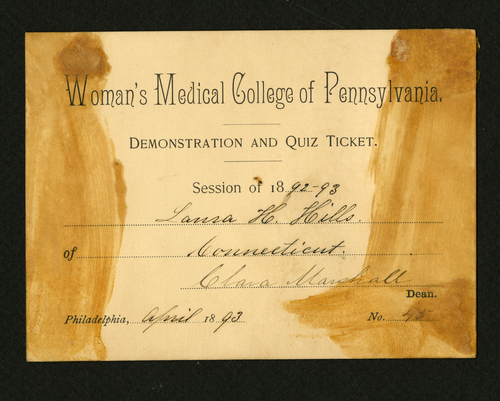 Woman's Medical College of Pennsylvania.
Demonstration and Quiz Ticket.
Session of 1892-93
Laura H. Hills.
of Connecticut,
Clara Marshall
Dean.
Philadelphia, April 1893 No. 45